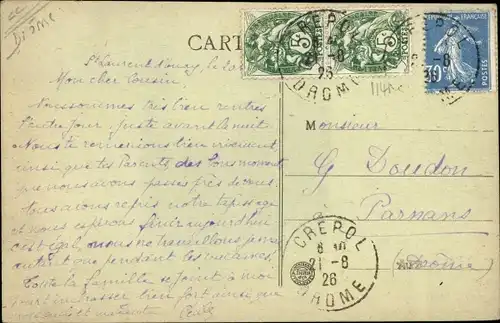 Drôme
CART
5
POSTES
5
POSTES
30
POSTES
CREPOL
26
DROME
1-8
26
St Laurent d'onay, le 20
Mon cher Cousin
Nous sommes très bien rentrés
l'autre jour juste avant la nuit.
Nous te remercions bien vivement
ainsi que tes Parents des bons moments
que nous avons passés près de vous.
Nous avons repris notre tapissage
et nous espérons finir aujourd'hui
c'est égal, nous ne travaillons jamais
autant que pendant les vacances.
Toute la famille se joint à moi
pour t'embrasser bien fort ainsi que
Monsieur
G Doudon
Parnans
(Drôme)
CREPOL
21-8
26
DROME